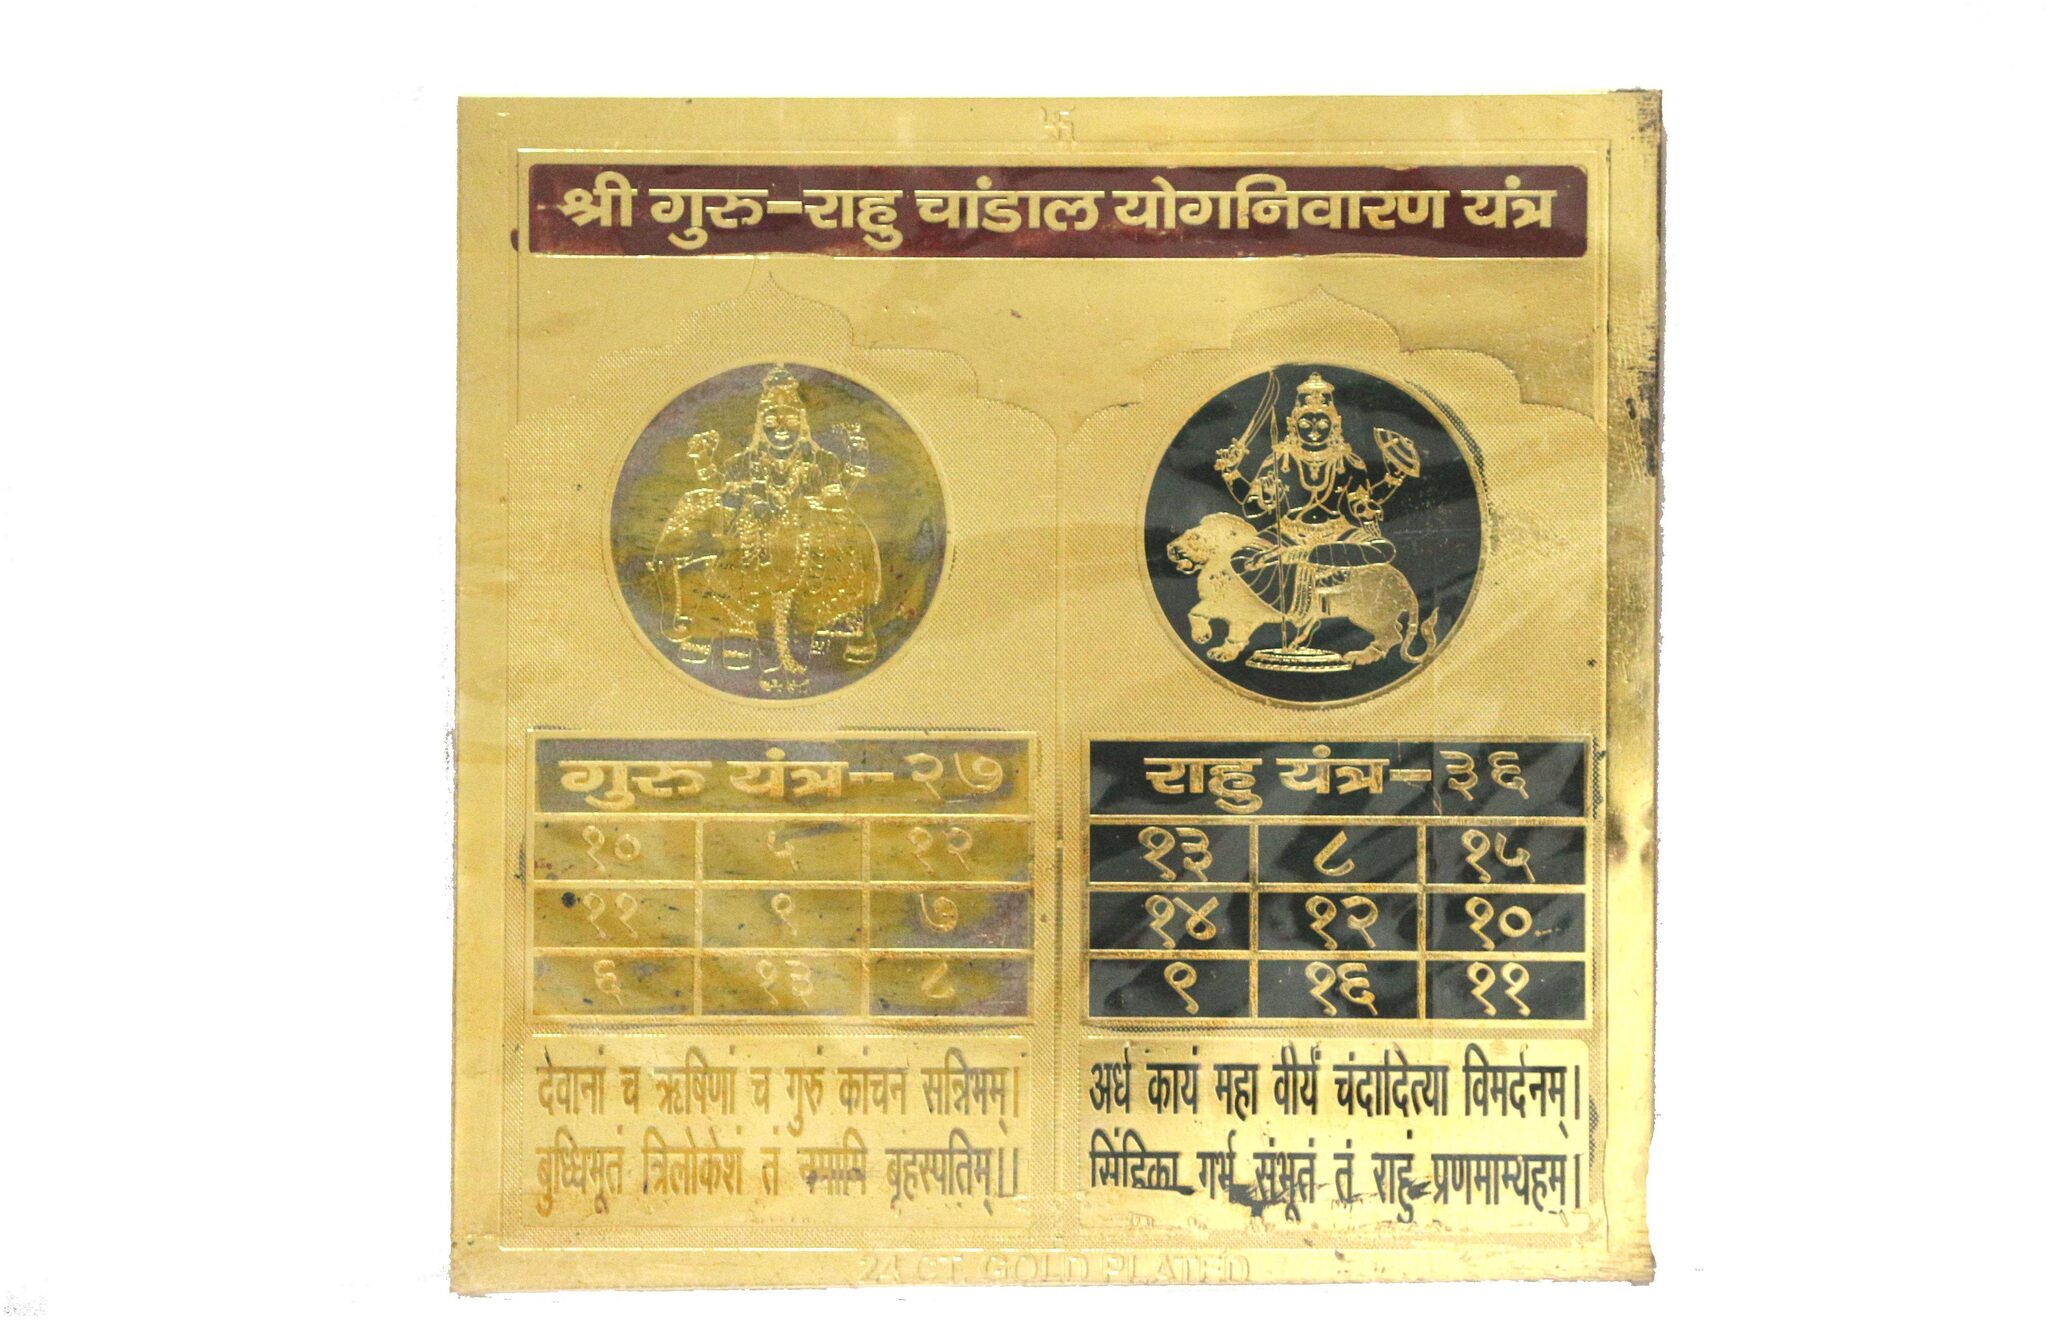 श्री गुरु-राहु चांडाल योगनिवारण यंत्र
गुरु यंत्र-२७
१० ५ १२
११ ९ ७
६ १३ ८
देवानां च ऋषिणां च गुरुं कांचन सन्निभम्।
बुध्धिभूतं त्रिलोकेशं तं नमामि बृहस्पतिम्।।
राहु यंत्र-३६
१३ ८ १५
१४ १२ १०
९ १६ ११
अर्ध कायं महा वीर्यं चंदादित्या विमर्दनम्।
सिंहिका गर्भ संभूतं तं राहुं प्रणमाम्यहम्।
24 CT. GOLD PLATED